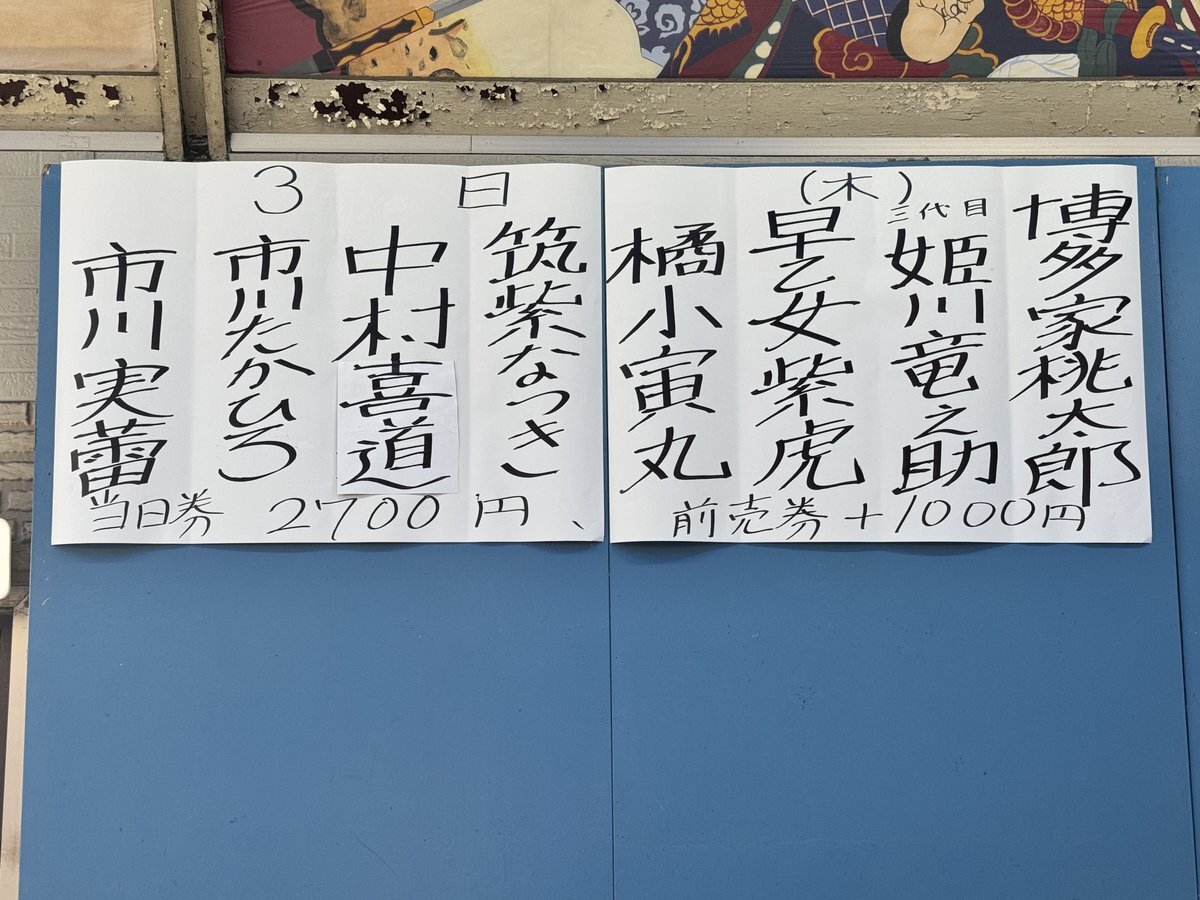 3日(木)
博多家桃太郎
三代目
姫川竜之助
早乙女紫虎
橘小寅丸
筑紫なつき
中村喜道
市川たかひろ
市川実蕾
当日券 2700円、前売券+1000円